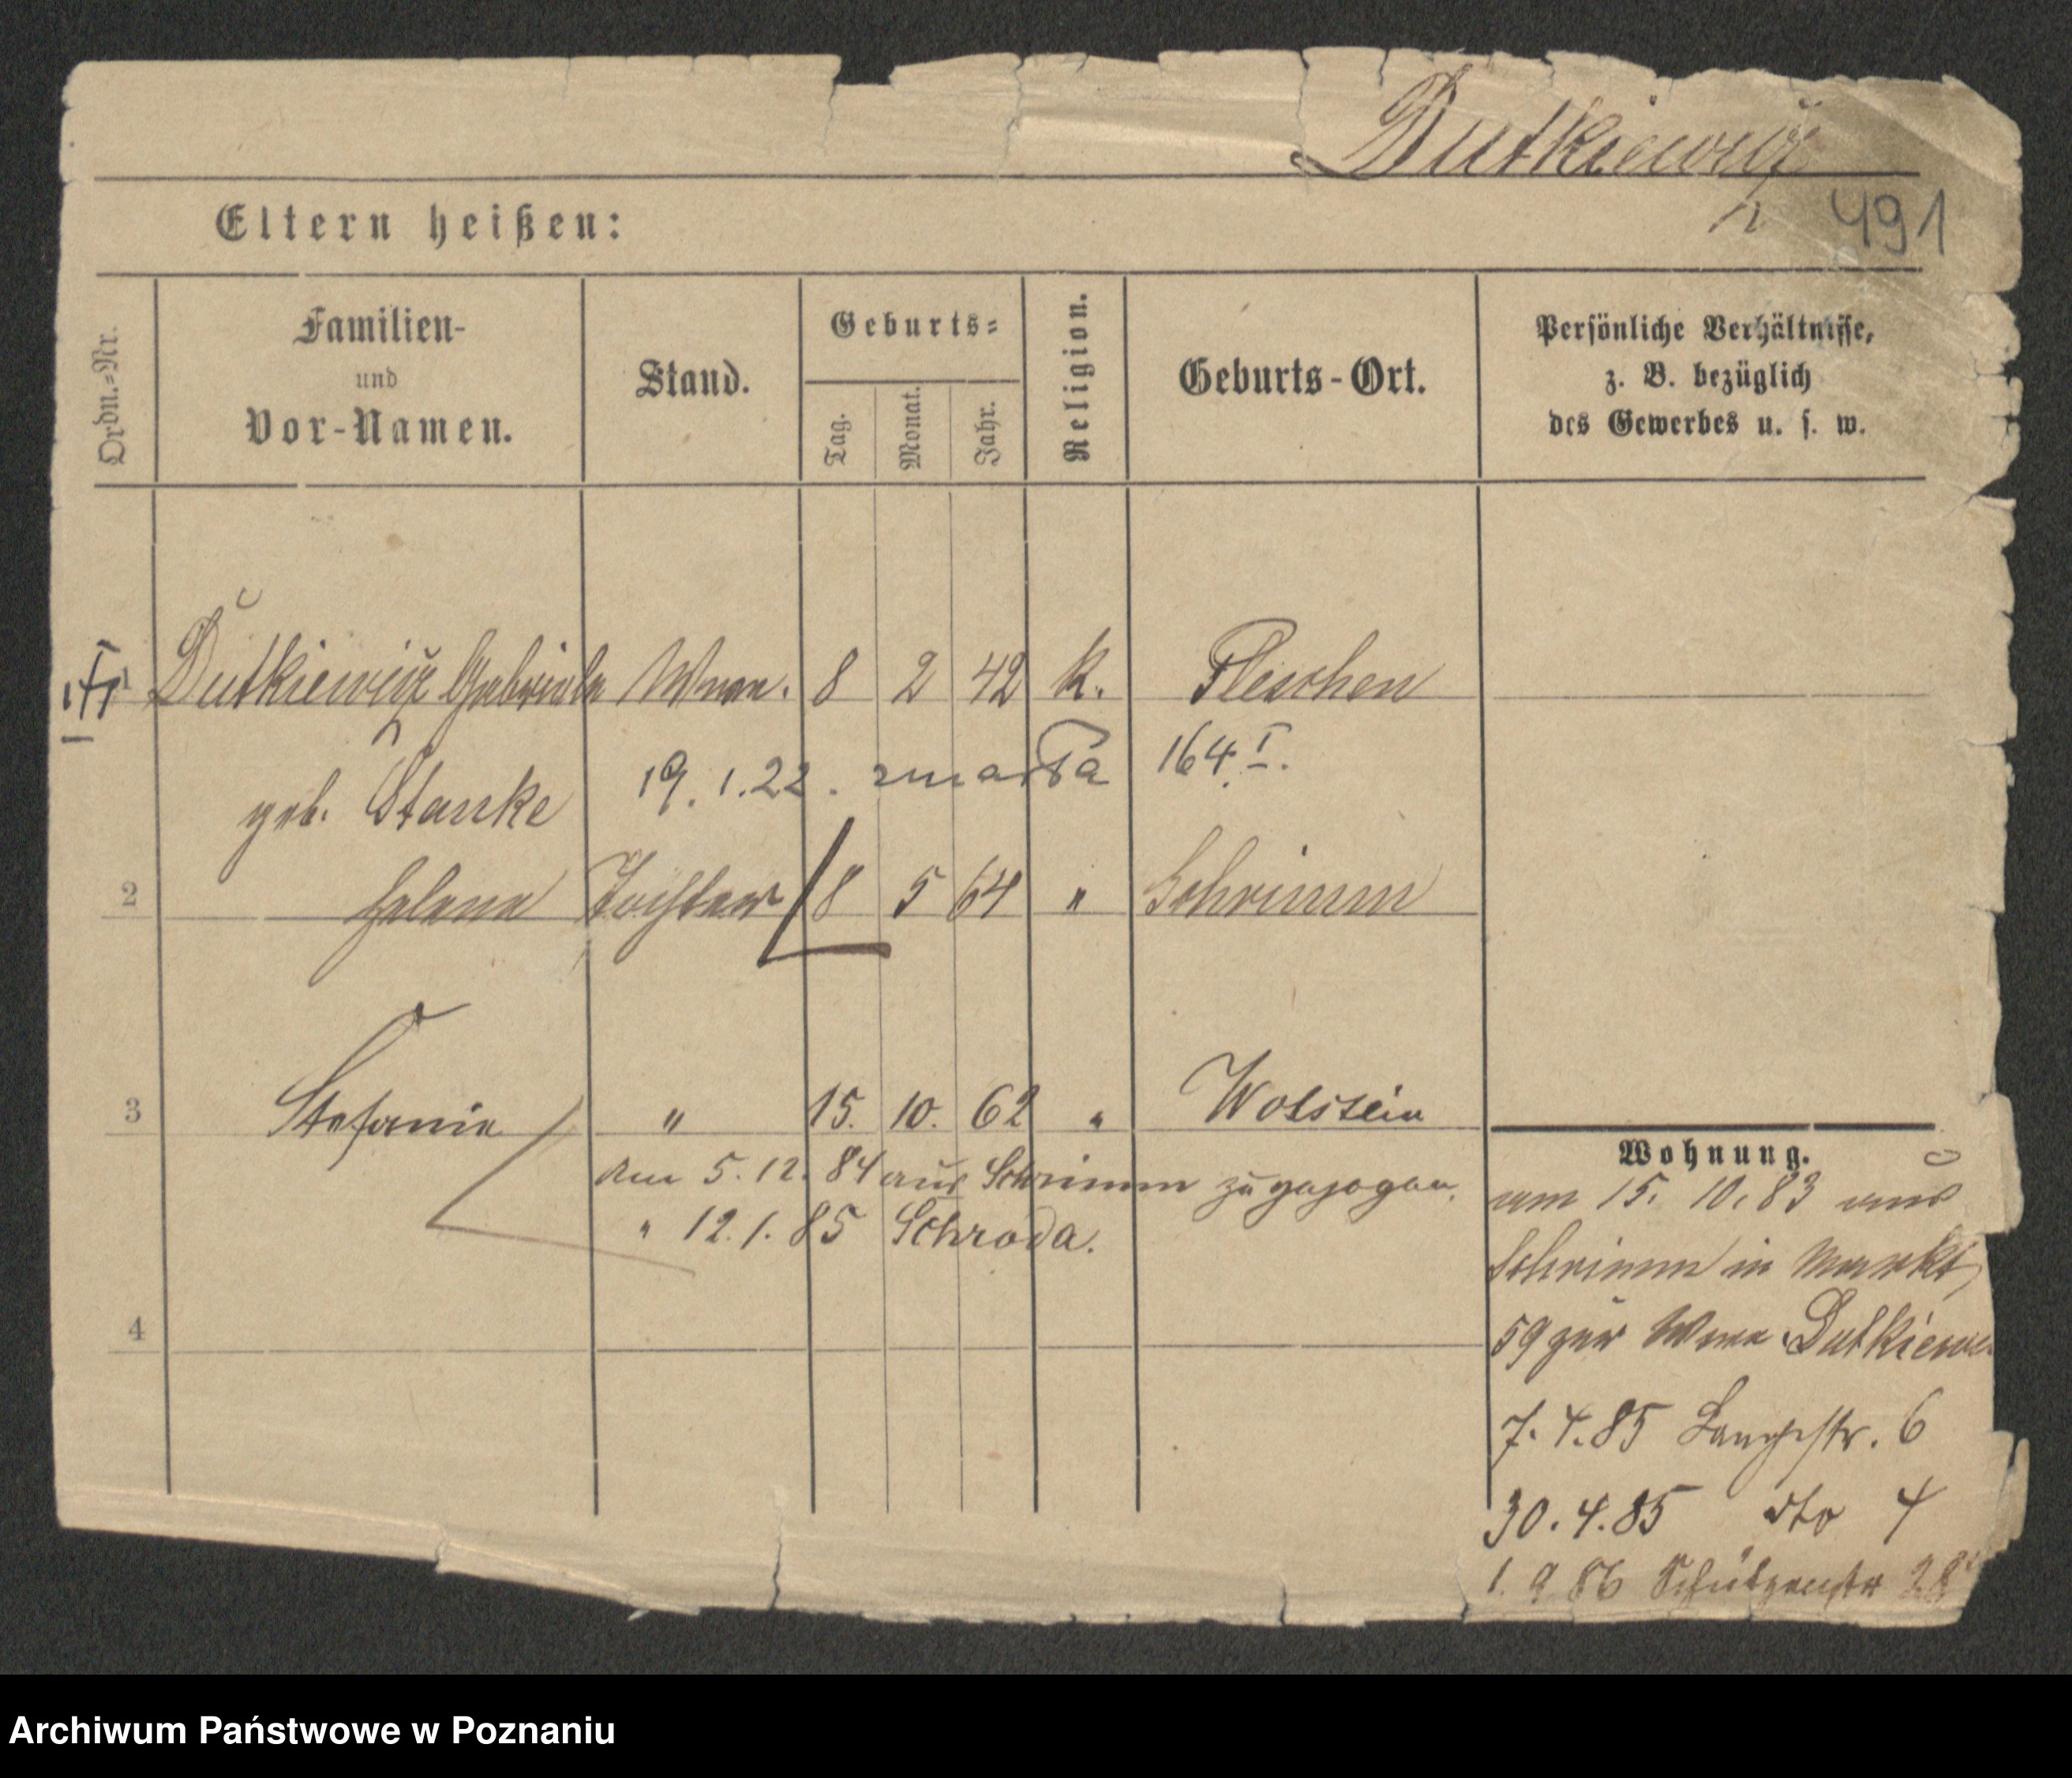 Dutkiewicz
491
Eltern heißen:
Ordn.=Nr.
Familien-
und
Vor-Namen.
Stand.
Geburts=
Tag.
Monat.
Jahr.
Religion.
Geburts-Ort.
Persönliche Verhältnisse,
z. B. bezüglich
des Gewerbes u. s. w.
1 Dutkiewicz Gabriela Wwe. 8 2 42 k. Pleschen
geb. Stanke 19.1.22. zmarła 164 I.
2 Helena Tochter 8 5 64 " Schrimm
3 Stefanie " 15. 10. 62 " Wolstein
Am 5.12.84 aus Schrimm zugezogen.
" 12.1.85 Schroda.
4
Wohnung.
am 15. 10. 83 aus
Schrimm in Markt
59 zur Wwe Dutkiewi
7.4.85 Langestr. 6
30.4.85 dto 4
1.9 86 Schützenstr 28
Archiwum Państwowe w Poznaniu